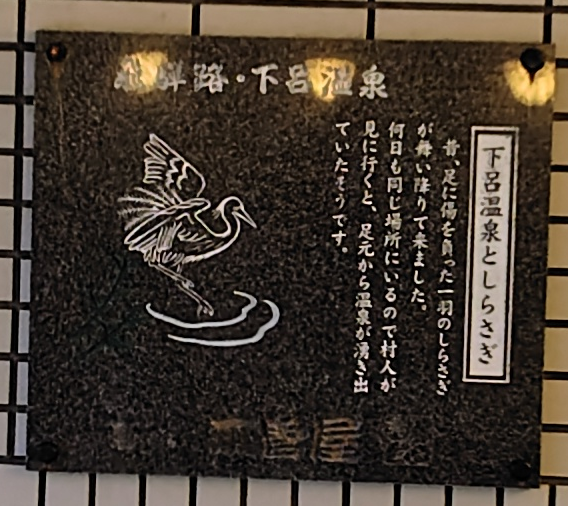 飛騨路・下呂温泉
下呂温泉としらさぎ
昔、足に傷を負った一羽のしらさぎ
が舞い降りて来ました。
何日も同じ場所にいるので村人が
見に行くと、足元から温泉が湧き出
ていたそうです。